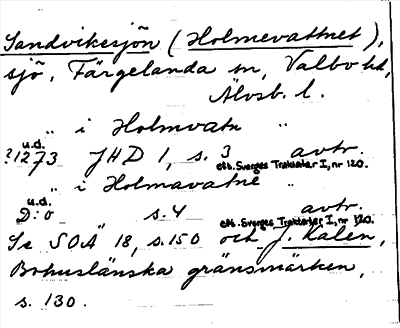 Sandvikesjön (Holmevattnet),
sjö, Färgelanda sn, Valbo hd,
Älvsb. l.
„ i Holmvatn „
u.d.
?1273 JHD 1, s. 3 avtr.
eft. Sverges Traktater I, nr 120.
„ i Holmavatne „
u.d.
D:o s. 4 avtr.
eft. Sverges Traktater I, nr 120.
Se SOÄ 18, s. 150 och J. Kalén,
Bohuslänska gränsmärken,
s. 130.